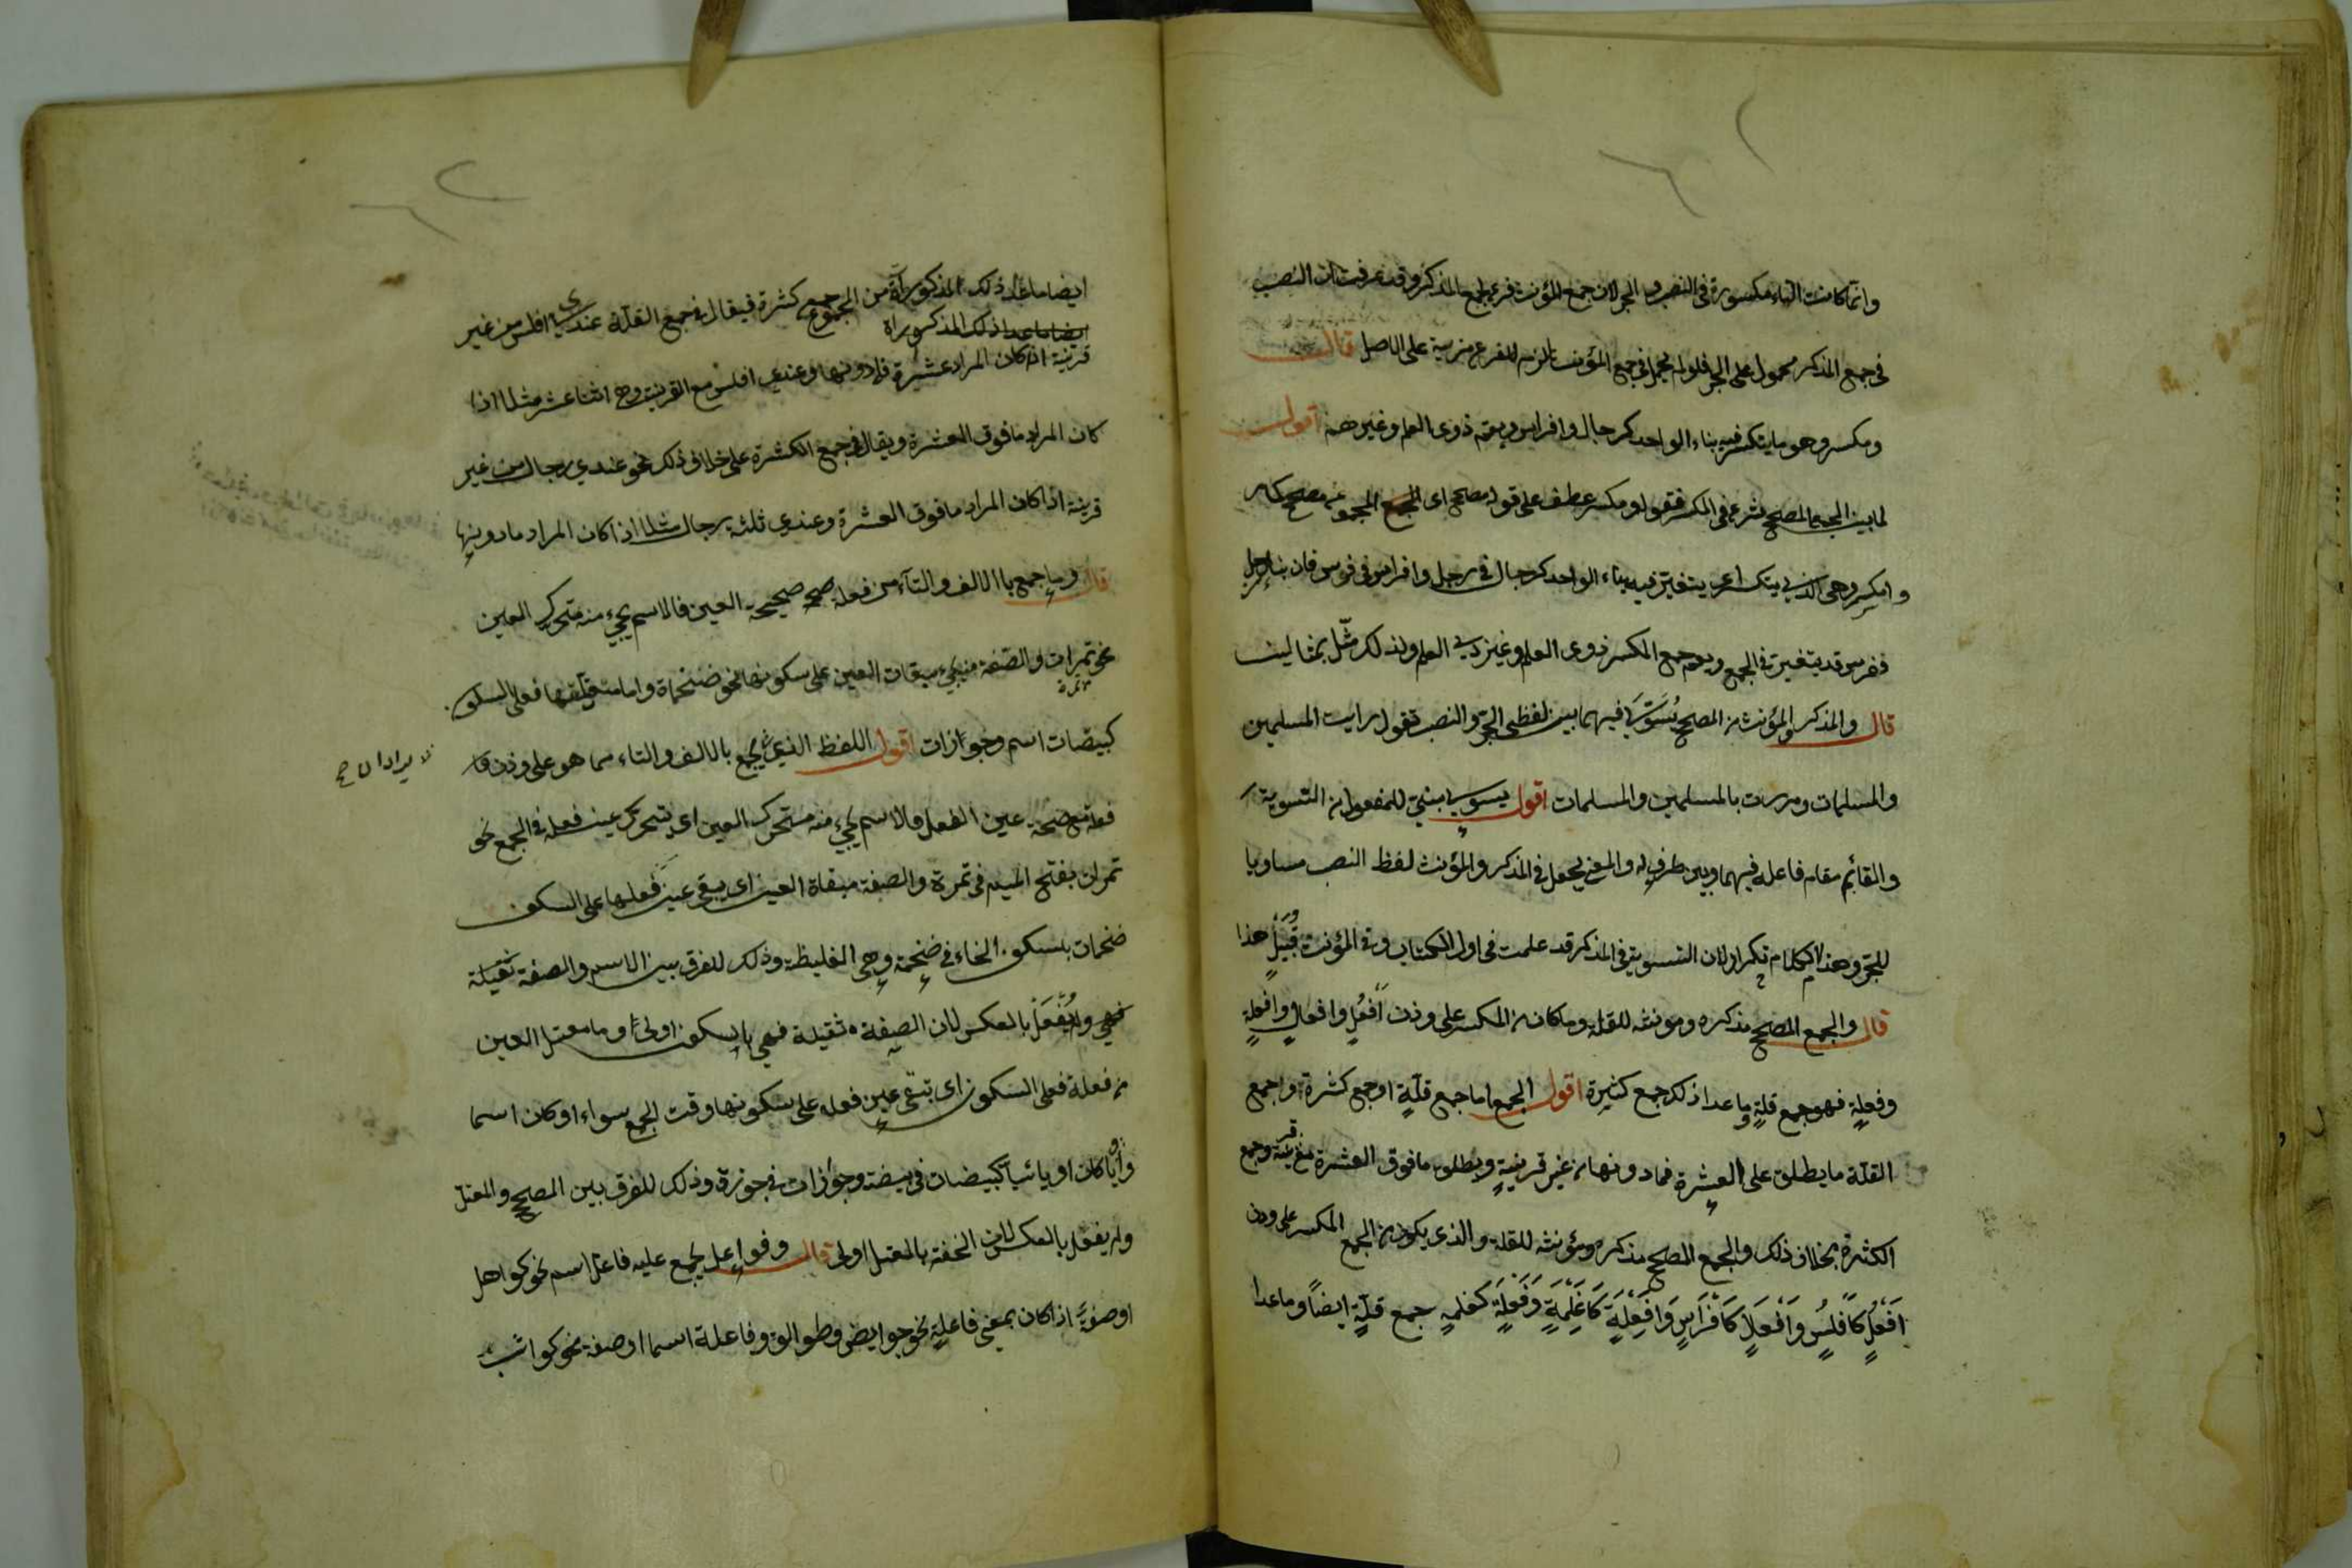 وانما كانت التاء مكسورة فى النصب والجر لان جمع المؤنث فرع لجمع المذكر وقد عرفت ان النصب
فى جمع المذكر محمول على الجر فلو لم يحمل فى جمع المؤنث لزم للفرع مزية على الاصل قال
ومكسر وهو ما يتكسر فيه بناء الواحد كرجال وافراس ويعم ذوى العلم وغيرهم اقول
لما بين الجمع المصحح شرع فى المكسر فقوله ومكسر عطف على قوله مصحح اى الجمع المجموع مصحح كامر
وامكسر وهى الذى يتكسر اى يتغير فيه بناء الواحد كرجال فى رجل وافراس فى فرس فان بناء رجل
ففرس قد يتغير فى الجمع ويعم جمع المكسر ذوى العلم وغير ذى العلم ولذلك مثّل بمثالين
قال والمذكر والمؤنث من المصحح يُسَوَّى فيهما بين لفظى الجرّ والنصب تقول رايت المسلمين
والمسلمات ومررت بالمسلمين والمسلمات اقول يسوى مبنىّ للمفعول من التسوية
والقائم مقام فاعله فيهما وبين ظرف له والمعنى يجعل فى المذكر والمؤنث لفظ النصب مساويا
للجرّ وهذا الكلام تكرار لان التسوية فى المذكر قد علمت فى اول الكتاب وفى المؤنث قُبَيْل هذا
قال والجمع المصحح مذكره ومونثه للقلة وما كان من المكسر على وزن اَفْعُلٍ وافعالٍ وافعلةٍ
وفعلةٍ فهو جمع قلةٍ وما عدا ذلك جمع كثيرة اقول الجمع اما جمع قلّةٍ او جمع كثرة واجمع
القلّة ما يطلق على العشرة فما دونها من غير قرينةٍ ويطلق ما فوق العشرة مع قرينة وجمع
الكثرة بخلاف ذلك والجمع المصحح مذكره ومؤنثه للقلة والذى يكون من الجمع المكسر على وزن
اَفْعُلٍ كَاَفْلُسٍ وَاَفْعَلَالٍ كَاَفْرَاسٍ وَاَفْعِلَةٍ كَاَغْلِمَةٍ وَفَعْلَةٍ كغلمةٍ جمع قلّةٍ ايضاً وما عدا
ايضا ما عدا ذلك المذكور آة من الجموع جمع كثرة فيقال فى جمع القلّة عندى افلس من غير
ايضا ما عدا ذلك المذكور اة
قرينة اذا كان المراد عشرة فما دونها وعندى افلس مع القرينة وهى اثنا عشر مثلا اذا
كان المراد ما فوق العشرة ويقال فى جمع الكثرة على خلاف ذلك نحو عندى رجال من غير
قرينة اذا كان المراد ما فوق العشرة وعندى ثلثه رجال مثلا اذا كان المراد ما دونها
قال وما جمع با الالف والتآء من فعلة صح صحيحة العين فالاسم يجىء منه متحرك العين
نحو تمرات والصّفة مبقات العين على سكونها نحو ضخماة واما معتلّها فعلى السكون
تمرة
كبيضات اسم وجوازات اقول اللفظ الذى يجمع بالالف والتاء مما هو على وزن
فعلة مع صحّة عين الفعل فالاسم يجىء منه متحرك العين اى يتحرك عين فعله فى الجمع نحو
تمرات بفتح الميم فى تمرة والصفة مبقاة العين اى يبقى عين فعلها على السكون
ضخمات بسكون الخاء فى ضخمة وهى الغليظة وذلك للفرق بين الاسم والصفة ثقيلة
فهى ولم يُفْعَل بالعكس لان الصفة ثقيلة فهى بالسكون اولى اوما معتل العين
من فعلة فعلى السكون اى تبقى عين فعله على سكونها وقت الجمع سواء او كان اسما
واويا كان او يائيا كبيضات فى بيضة وجوازات فى جوزة وذلك للفرق بين المصحح والمعتل
ولم يفعل بالعكس لان الخفة بالمعتل اولى قال وفواعل يجمع عليه فاعل اسم نحو كواهل
او صفةً اذا كان بمعنى فاعلةٍ نحو حوايض وطوالق وفاعلة اسما او صفة نحو كواثب